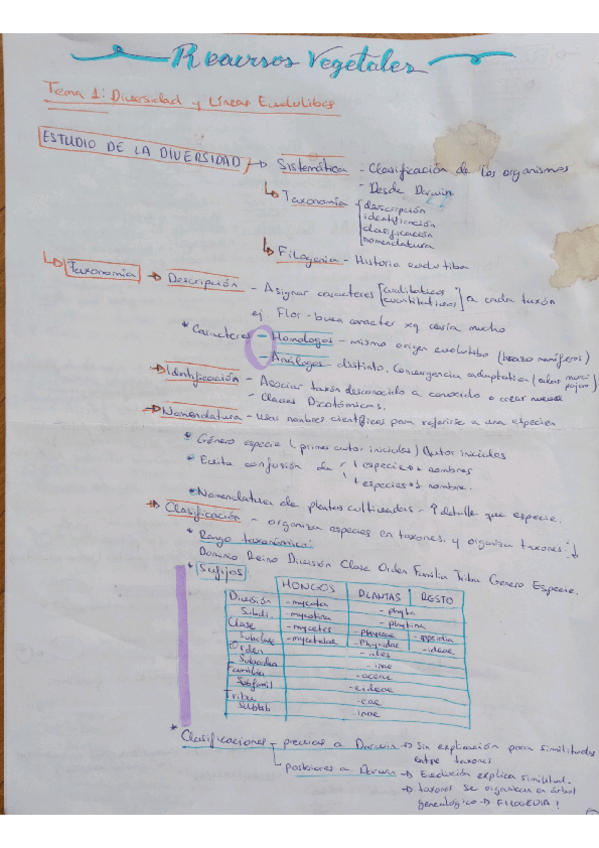 Recursos Vegetales
Tema 1: Diversidad y Líneas Evolutibas
ESTUDIO DE LA DIVERSIDAD → Sistemática - Clasificación de los organismos
- Desde Darwin
↳ Taxonomía descripción
identificación
clasificación
nomenclatura
↳ Filogenia - Historia evolutiba
↳ Taxonomía → Descripción - Asignar caracteres [cualitativos cuantitativos] a cada taxón
ej Flor - buen caracter xq varía mucho
* Caracteres - Homólogos - mismo origen evolutibo (brazo mamíferos)
- Análogos - distinto. Convergencia adaptatiba (alas murci pajaro)
→ Identificación - Asociar taxón desconocido a conocido o crear nuevo
- Claves Dicotómicas.
→ Nomenclatura - usar nombres científicos para referirse a una especien
* Género especie (primer autor iniciales) Autor iniciales
* Evita confusión de 1 especie ++ nombres
++ especies 1 nombre.
* Nomenclatura de plantas cultivadas - ↑ detalle que especie.
→ Clasificación - organiza especies en taxones. y organiza taxones ↓
* Rango taxonómico:
Dominio Reino División Clase Orden Familia Tribu Género Especie.
* Sufijos
HONGOS PLANTAS RESTO
División - mycota - phyta
Subdi. - mycotina - phytina
Clase - mycetes - phyceae - opsidia
Subclase - mycetidae - phycidae - ideae
Orden - ales
Suborden - inae
Familia - aceae
Subfamil - oideae
Tribu - eae
Subtrib - inae
* Clasificaciones - previas a Darwin → Sin explicación para similitudes
entre taxones
posteriores a Darwin → Evolución explica similitud.
→ taxones se organizan en árbol
genealógico → FILOGENIA!